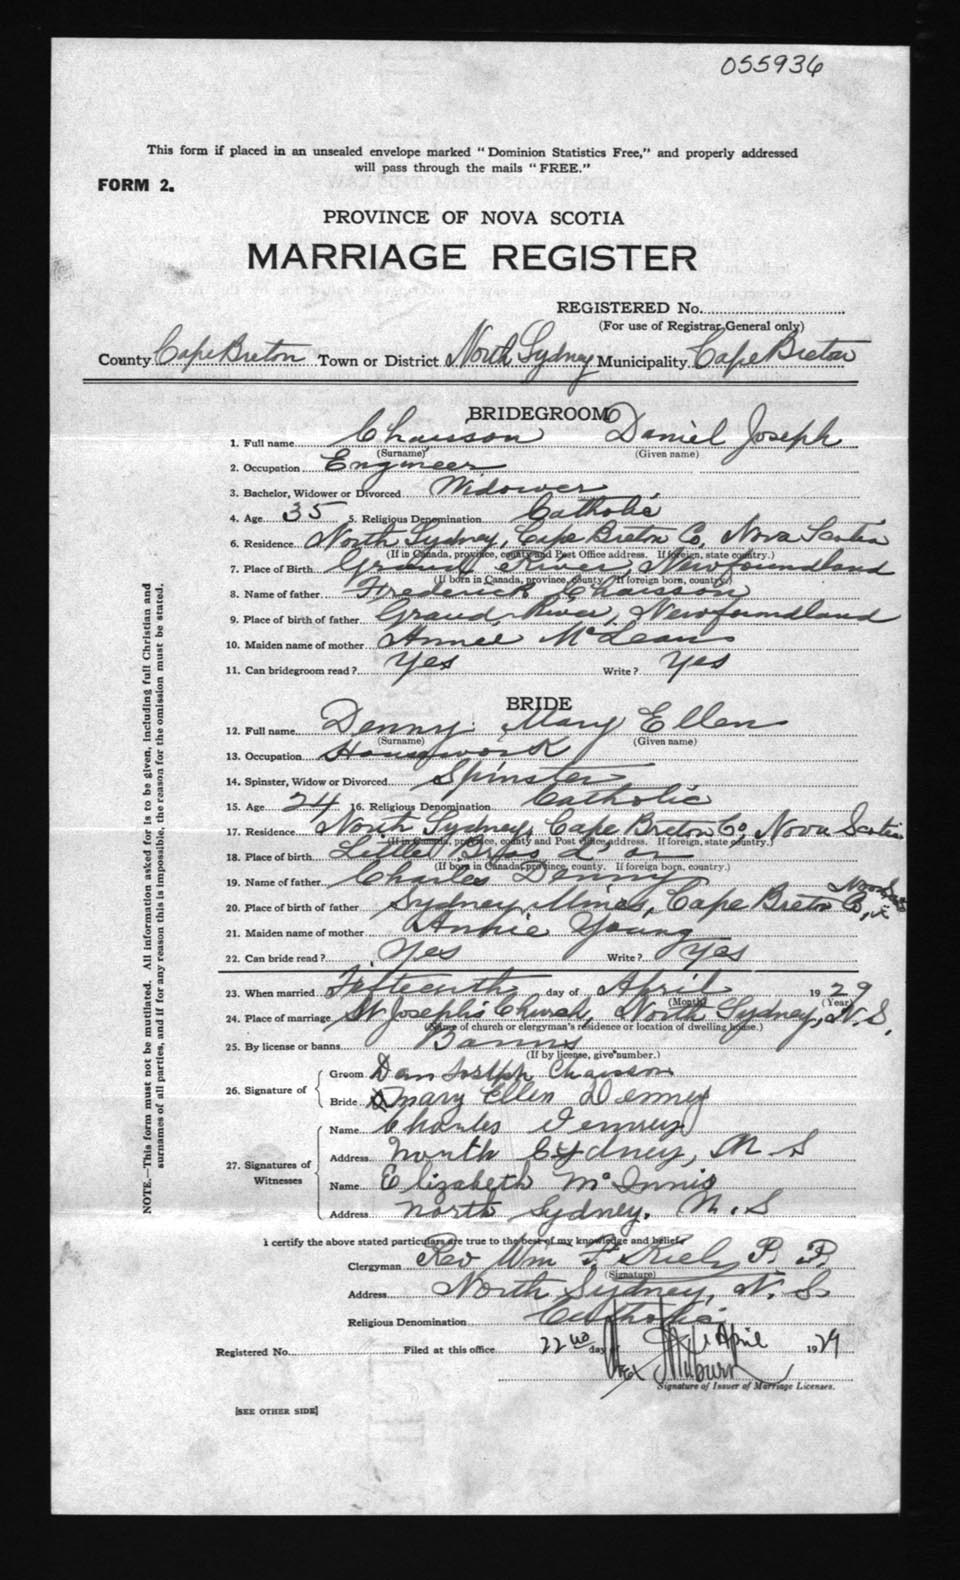 055936
This form if placed in an unsealed envelope marked "Dominion Statistics Free," and properly addressed
will pass through the mails "FREE."
FORM 2.
PROVINCE OF NOVA SCOTIA
MARRIAGE REGISTER
REGISTERED No.
(For use of Registrar General only)
County Cape Breton Town or District North Sydney Municipality Cape Breton
BRIDEGROOM
1. Full name Chaisson Daniel Joseph
(Surname) (Given name)
2. Occupation Engineer
3. Bachelor, Widower or Divorced Widower
4. Age 35 5. Religious Denomination Catholic
6. Residence North Sydney, Cape Breton Co, Nova Scotia
(If in Canada, province, county and Post Office address. If foreign, state country.)
7. Place of Birth Grand River, Newfoundland
(If born in Canada, province, county. If foreign born, country.)
8. Name of father Frederick Chaisson
9. Place of birth of father Grand River, Newfoundland
10. Maiden name of mother Annie McLean
11. Can bridegroom read? Yes Write? Yes
BRIDE
12. Full name Denny Mary Ellen
(Surname) (Given name)
13. Occupation Housework
14. Spinster, Widow or Divorced Spinster
15. Age 24 16. Religious Denomination Catholic
17. Residence North Sydney, Cape Breton Co, Nova Scotia
(If in Canada, province, county and Post Office address. If foreign, state country.)
18. Place of birth Little Bras d'or
(If born in Canada, province, county. If foreign born, country.)
19. Name of father Charles Denny
20. Place of birth of father Sydney Mines, Cape Breton Co, Nova Scotia
21. Maiden name of mother Annie Young
22. Can bride read? Yes Write? Yes
23. When married Fifteenth day of April 1929
(Month) (Year)
24. Place of marriage St Joseph's Church, North Sydney, N.S.
(Name of church or clergyman's residence or location of dwelling house.)
25. By license or banns Banns
(If by license, give number.)
26. Signature of
Groom Dan Joseph Chaisson
Bride Mary Ellen Denney
27. Signatures of Witnesses
Name Charles Denney
Address North Sydney, N S
Name Elizabeth McInnis
Address North Sydney. N. S
I certify the above stated particulars are true to the best of my knowledge and belief.
Clergyman Rev Wm F. Kiely P. P.
(Signature)
Address North Sydney, N. S.
Religious Denomination Catholic
Registered No. Filed at this office 22nd day of April 1929
Signature of Issuer of Marriage Licenses.
[SEE OTHER SIDE]
NOTE.—This form must not be mutilated. All information asked for is to be given, including full Christian and
surnames of all parties, and if for any reason this is impossible, the reason for the omission must be stated.